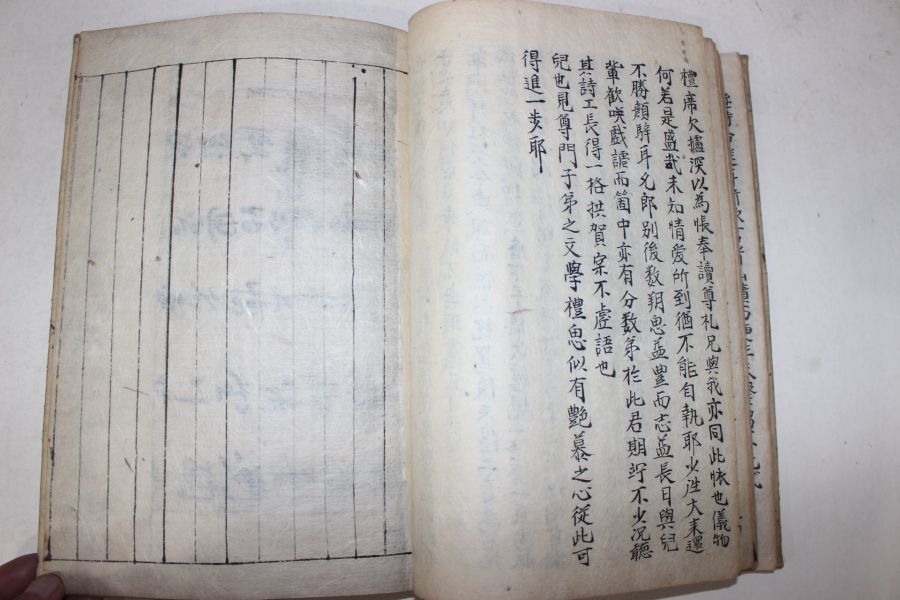 禮席欠攄深以為悵奉讀尊札兄與我亦同此悵也儀物
何若是盛哉未知情愛所到猶不能自執耶少迬大來還
不勝顔騂耳允郎別後数朔思益豊而志益長日與兒
軰歡咲戱謔而箇中亦有分数弟於此君期竚不少况聽
其詩工長得一格拱賀宲不虛語也
兒也見尊門子弟之文學禮思似有艶慕之心從此可
得進一步耶